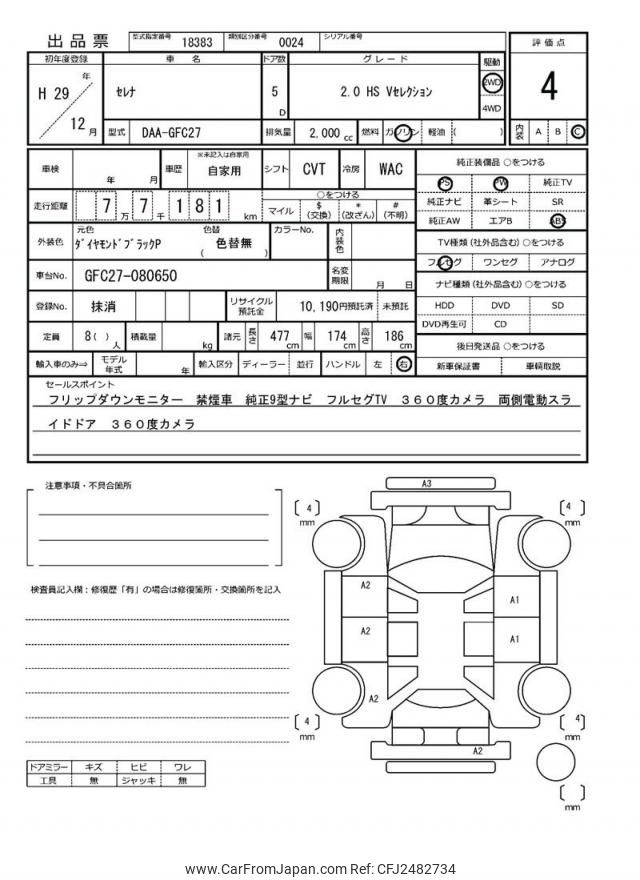 出品票 型式指定番号 18383 類別区分番号 0024 シリアル番号
評価点
4
内装 A B C
初年度登録 車名 ドア数 グレード 駆動
H 29 年 12 月 セレナ 5 D 2.0 HS Vセレクション 2WD
4WD
型式 DAA-GFC27 排気量 2,000 cc 燃料 ガソリン 軽油 ( )
車検 年 月 車歴 ※未記入は自家用 自家用 シフト CVT 冷房 WAC
走行距離 7 万 7 千 1 8 1 km
○をつける
マイル $ (交換) * (改ざん) # (不明)
外装色 元色 ダイヤモンドブラックP 色替 ( 色替無 ) カラーNo. 内装色
車台No. GFC27-080650 名変期限 月 日
登録No. 抹消 リサイクル預託金 10,190円預託済 未預託
定員 8( )人 積載量 kg 諸元 長さ 477 cm 幅 174 cm 高さ 186 cm
輸入車のみ⇒ モデル年式 年 輸入区分 ディーラー 並行 ハンドル 左 右
純正装備品 ○をつける
PS PW 純正TV
純正ナビ 革シート SR
純正AW エアB ABS
TV種類 (社外品含む) ○をつける
フルセグ ワンセグ アナログ
ナビ種類 (社外品含む) ○をつける
HDD DVD SD
DVD再生可 CD
後日発送品 ○をつける
新車保証書 車輌取説
セールスポイント
フリップダウンモニター 禁煙車 純正9型ナビ フルセグTV 360度カメラ 両側電動スラ
イドドア 360度カメラ
注意事項・不具合箇所
検査員記入欄：修復歴「有」の場合は修復箇所・交換箇所を記入
ドアミラー キズ ヒビ ワレ
工具 無 ジャッキ 無
A3
[ 4 ] mm
[ 4 ] mm
A2
A1
A2
A1
A2
[ 4 ] mm
[ 4 ] mm
A2
[ ] mm
www.CarFromJapan.com Ref: CFJ2482734